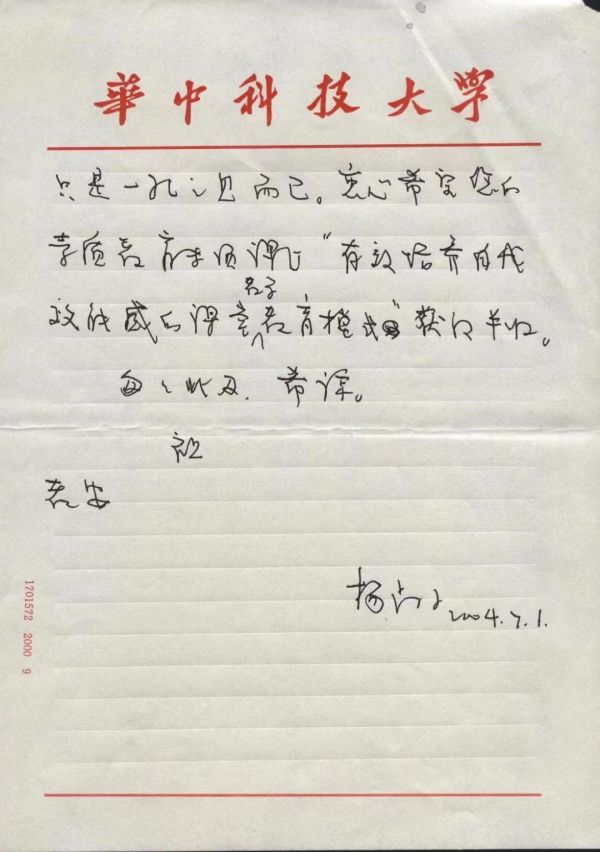 華中科技大学
只是一孔之见而已。衷心希望您的
素质教育 课 "有效培养自我
效能感的课堂教育模式"获得丰收。
教学
匆匆此及,希谅。
祝
教安
杨叔子 2004.7.1.
1701572 2000 9